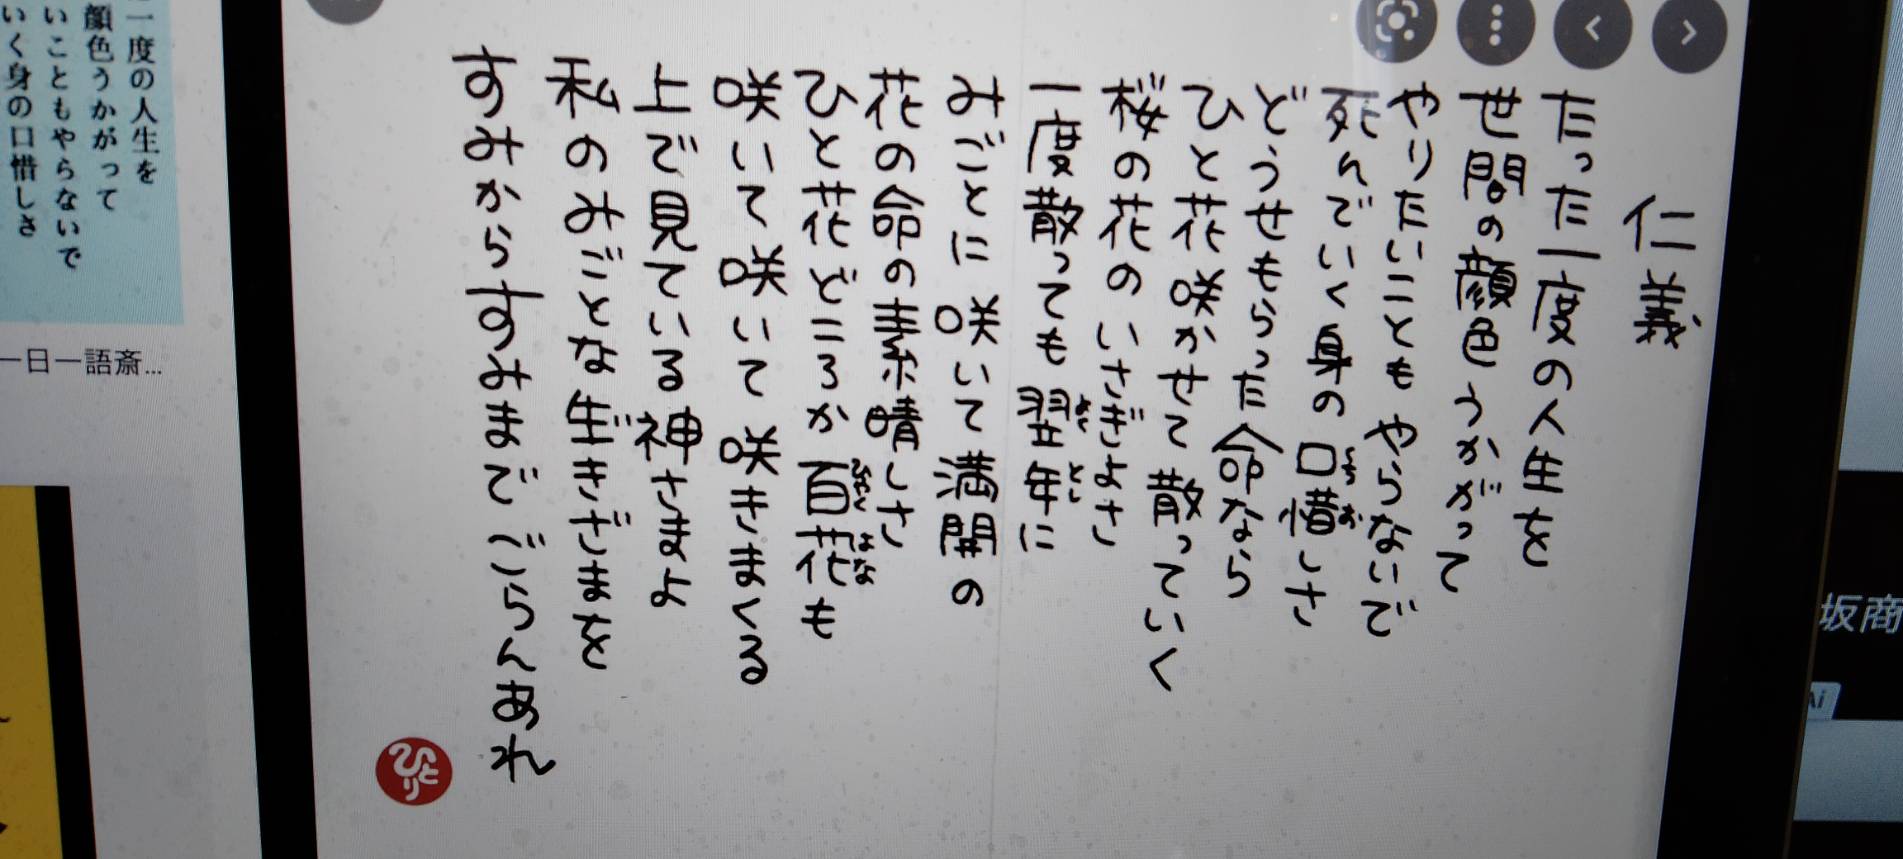 仁義
たった一度の人生を
世間の顔色うかがって
やりたいこともやらないで
死んでいく身の口惜しさ
くちお
どうせもらった命なら
ひと花咲かせて散っていく
桜の花のいさぎよさ
一度散っても翌年に
よくとし
みごとに咲いて満開の
花の命の素晴しさ
ひと花どころか百花も
ひゃくはな
咲いて咲いて咲きまくる
上で見ている神さまよ
私のみごとな生きざまを
すみからすみまでごらんあれ
ひとり
一度の人生を
顔色うかがって
いこともやらないで
いく身の口惜しさ
一日一語斎...
坂商
Ai